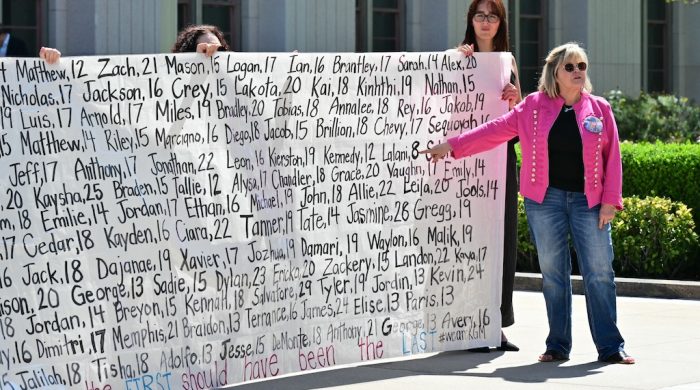 Matthew, 12 Zach, 21 Mason, 15 Logan, 17 Ian, 16 Bruntley, 17 Sarah, 14 Alex, 20
Nicholas, 17 Jackson, 16 Crey, 15 Lakota, 20 Kai, 18 Kinhthi, 19 Nathan, 15
Luis, 17 Arnold, 17 Miles, 19 Bradley, 20 Tobias, 18 Annalee, 18 Rey, 16 Jakob, 19
Matthew, 14 Riley, 15 Marciano, 16 Diego, 18 Jacob, 15 Brillion, 18 Chevy, 17 Sequoyah
Jeff, 17 Anthony, 17 Jonathan, 22 Leon, 16 Kierston, 19 Kennedy, 12 Lalani, 8
20 Kaysha, 25 Braden, 15 Tallie, 12 Alysa, 17 Chandler, 18 Grace, 20 Vaughn, 17 Emily, 14
18 Emilie, 14 Jordan, 17 Ethan, 16 Michael, 19 John, 18 Allie, 22 Leila, 20 Jools, 14
17 Cedar, 18 Kayden, 16 Ciara, 22 Tanner, 19 Tate, 14 Jasmine, 26 Gregg, 19
16 Jack, 18 Dajanae, 19 Xavier, 17 Jozhua, 19 Damari, 19 Waylon, 16 Malik, 19
20 George, 13 Sadie, 15 Dylan, 23 Ericka, 20 Zackery, 15 Landon, 22 Kaya, 17
18 Jordan, 14 Breyon, 15 Kennall, 18 Salvatore, 29 Tyler, 19 Jordin, 13 Kevin, 24
20 Dimitri, 17 Memphis, 21 Braidon, 13 Terrance, 16 James, 24 Elise, 13 Paris, 13
Jalilah, 18 Tisha, 18 Adolfo, 13 Jesse, 15 DeMonte, 18 Anthony, 21 George, 13 Avery, 16
the FIRST should have been the LAST